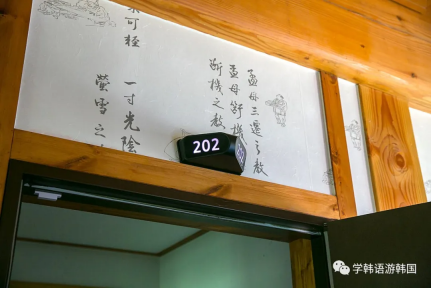 孟母三遷之敎
孟母機
斷機之敎
可輕 一寸光陰
螢雪之
202
学韩语游韩国